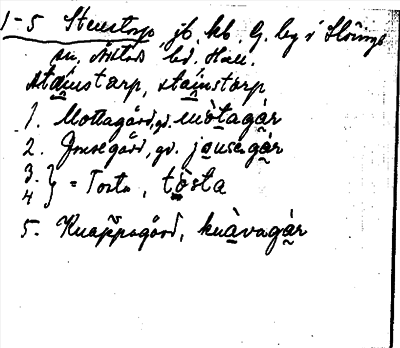 1-5 Stenstorp, jb. kb. G. by i Slöinge
sn, Årstad hd. Hall.
stainstarp, stainstarp
1. Mottagård, gd. mòtagár
2. Jonsegård, gd. jonsagár
3. } = Tosta, tòsta
4
5. Knappagård, knàvagár